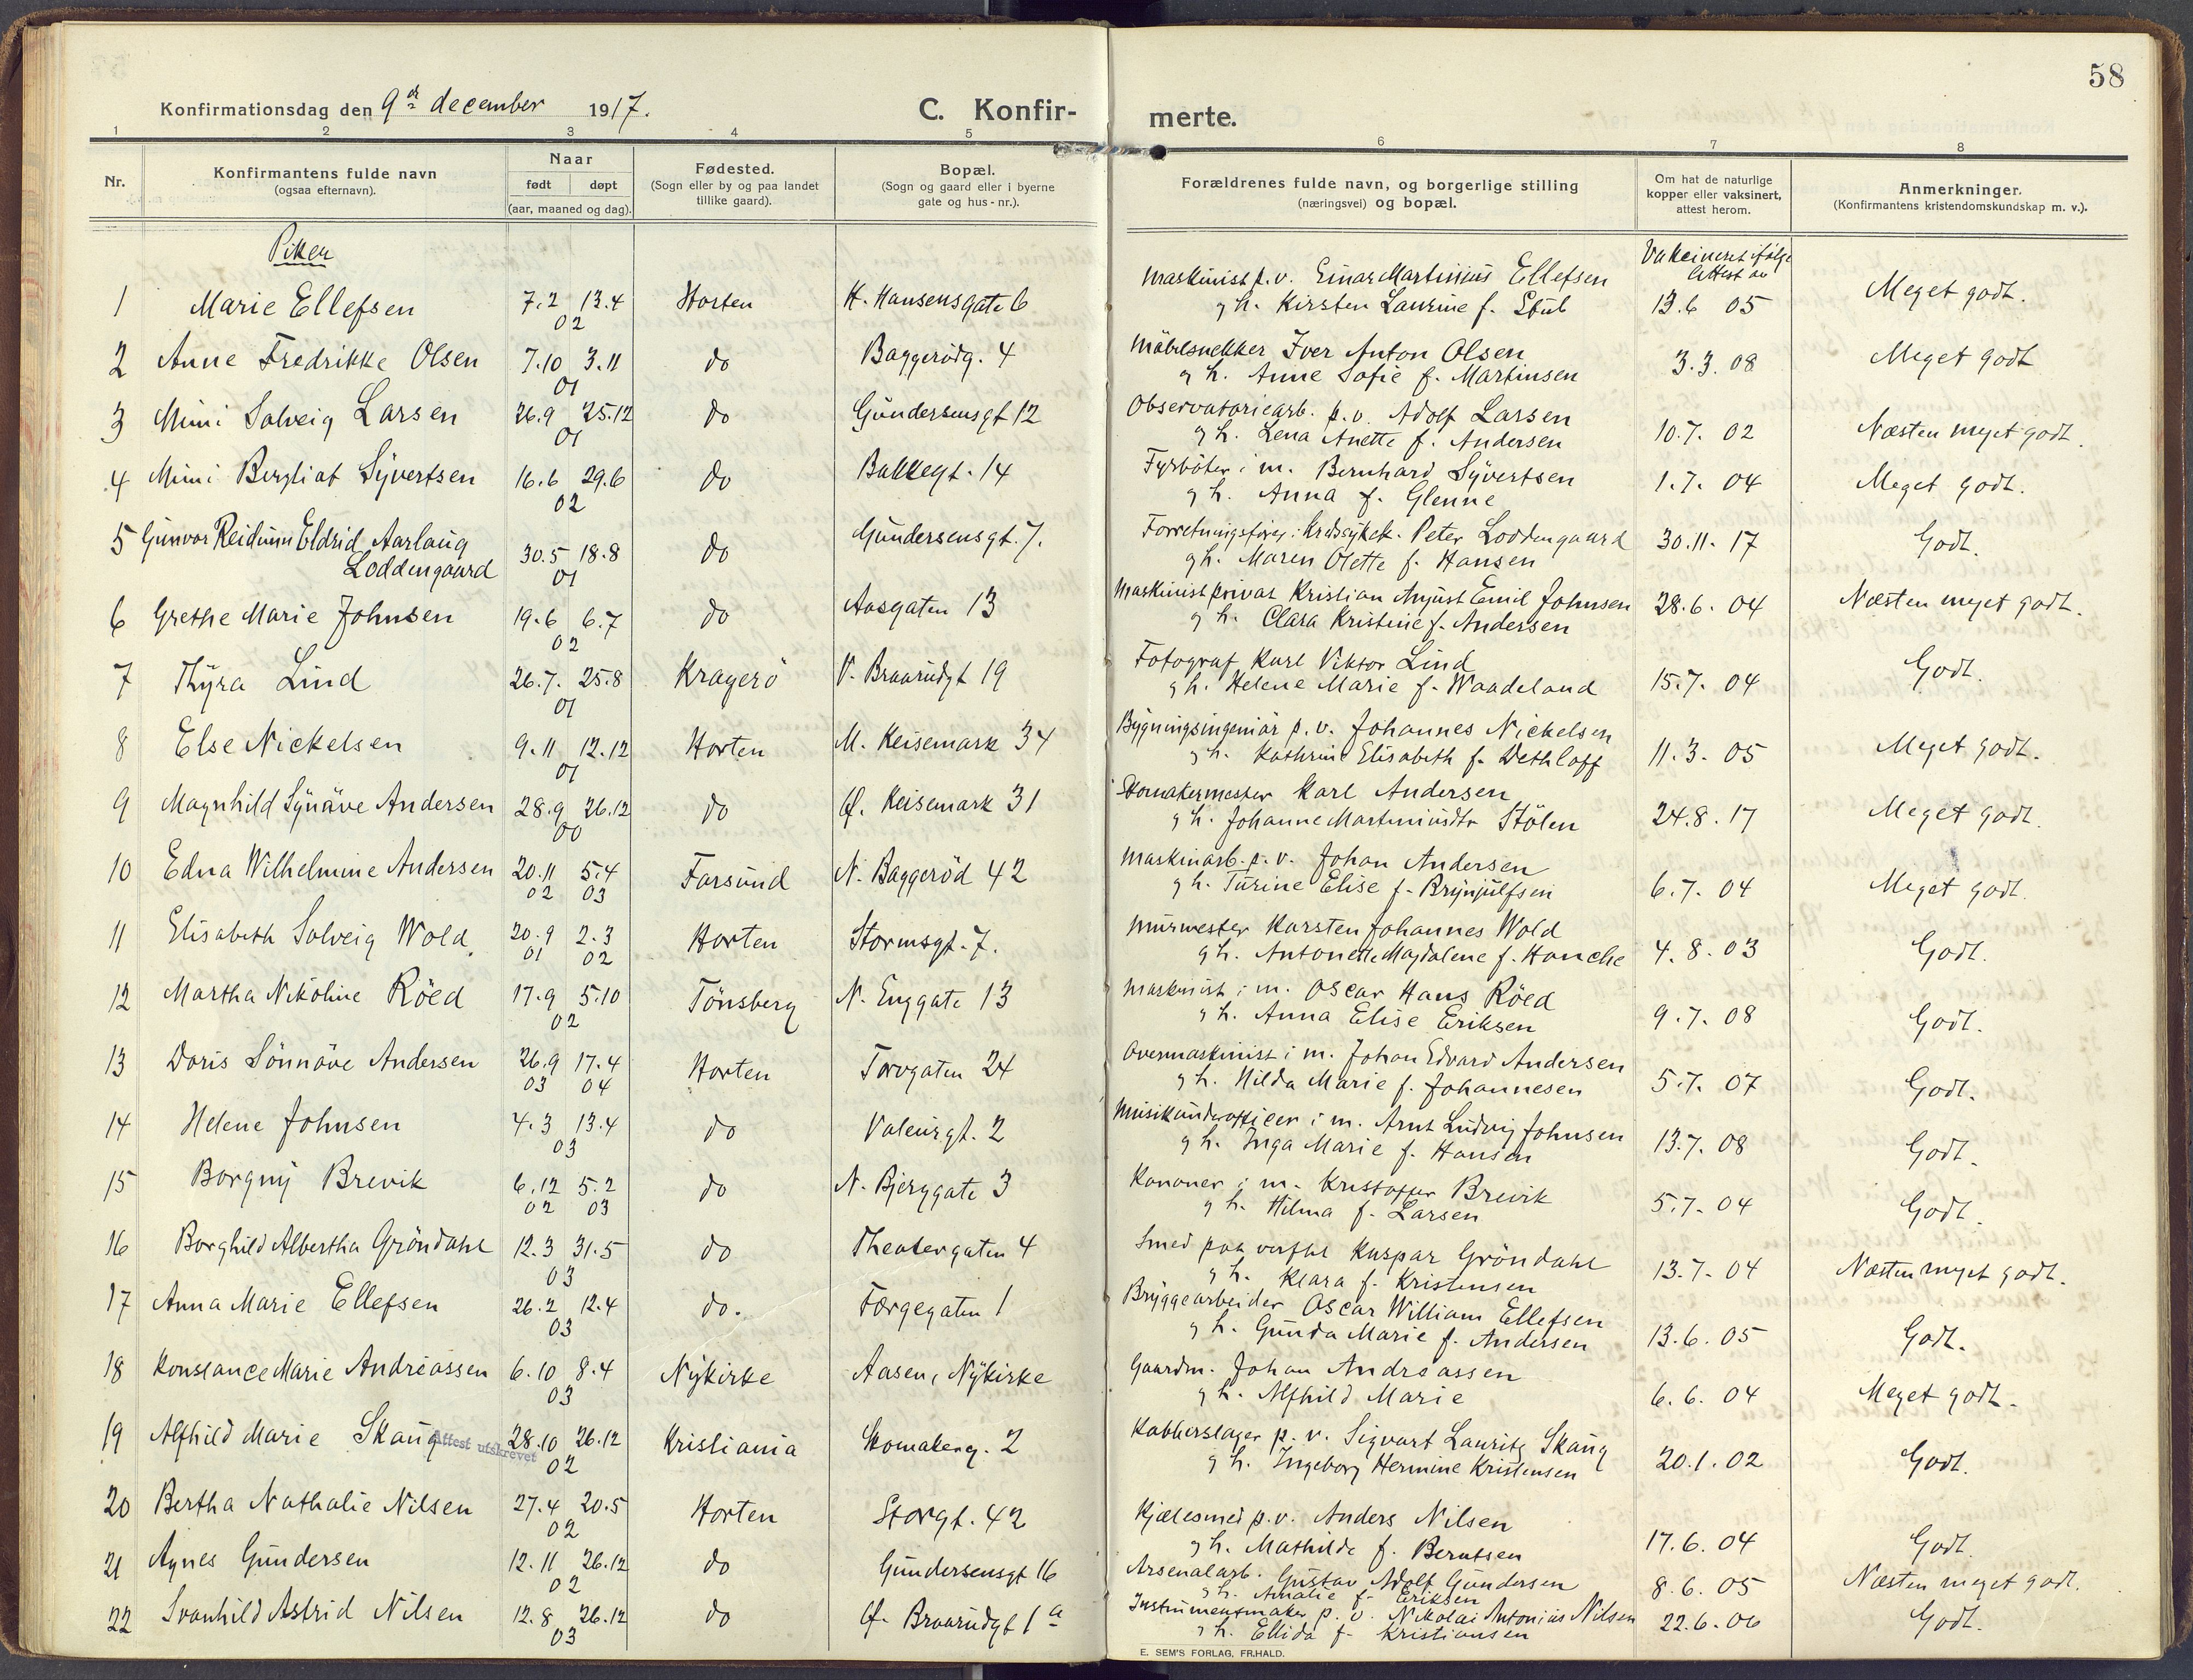 58
Konfirmationsdag den 9de december 1917.
C. Konfir-
merte.
1 2 3 4 5 6 7 8
Nr.
Konfirmantens fulde navn
(ogsaa efternavn).
Naar
født døpt
(aar, maaned og dag).
Fødested.
(Sogn eller by og paa landet
tillike gaard).
Bopæl.
(Sogn og gaard eller i byerne
gate og hus-nr.).
Forældrenes fulde navn, og borgerlige stilling
(næringsvei) og bopæl.
Om hat de naturlige
kopper eller vaksinert,
attest herom.
Anmerkninger.
(Konfirmantens kristendomskundskap m. v.).
Piker
Vakcineret ifølge
Attest av
1 Marie Ellefsen 7.2 13.4 02 Horten H. Hansensgate 6
Maskinist p.v. Einar Martinius Ellefsen
g h. Kirsten Laurine f. Stub 13.6 05 Meget godt.
2 Anne Fredrikke Olsen 7.10 3.11 01 do Baggerödg. 4
Möbelsnekker Iver Anton Olsen
g h. Anne Sofie f. Martinsen 3.3.08 Meget godt
3 Mimi Solveig Larsen 26.9 25.12 01 do Gundersensgt 12
Observatoriearb. p.v. Adolf Larsen
g h. Lena Anette f. Andersen 10.7. 02 Næsten meget godt.
4 Mimi Bergliot Syvertsen 16.6 29.6 02 do Bakkegt. 14
Fyrböter i m. Bernhard Syvertsen
g h. Anna f. Glenne 1.7. 04 Meget godt.
5 Gunvor Reidunn Eldrid Aarlaug
Loddengaard 30.5 18.8 01 do Gundersensgt. 7.
Forretningsförer i Kredssykek. Peter Loddengaard
g h. Maren Olette f. Hansen 30.11. 17 Godt.
6 Grethe Marie Johnsen 19.6 6.7 02 do Aasgaten 13
Maskinist privat Kristian August Emil Johnsen
g h. Clara Kristine f. Andersen 28.6. 04 Næsten meget godt.
7 Thyra Lind 26.7. 25.8 01 Kragerö V. Braarudgt 19
Fotograf Karl Viktor Lind
g h. Helene Marie f. Waadeland 15.7. 04 Godt.
8 Else Nickelsen 9.11 12.12 01 Horten M. Keisemark 34
Bygningsingeniör p.v. Johannes Nickelsen
g h. Kathrine Elisabeth f. Dethloff 11.3. 05 Meget godt.
9 Magnhild Synöve Andersen 28.9 26.12 00 do Ø. Keisemark 31
Skomakermester Karl Andersen
g h. Johanne Martiniusdtr Stölen 24.8.17 Meget godt.
10 Edna Wilhelmine Andersen 20.11 5.4 02 03 Farsund N. Baggeröd 42
Maskinarb. p.v. Johan Andersen
g h. Turine Elise f. Brynjulfsen 6.7. 04 Meget godt.
11 Elisabeth Solveig Wold. 20.9 2.3 01 02 Horten Stormsgt. 7.
Murmester Karsten Johannes Wold
g h. Antonette Magdalene f. Hanche 4.8.03 Godt.
12 Martha Nikoline Röed 17.9 5.10 02 Tönsberg N. Enggate 13
Maskinist i m. Oscar Hans Röed
g h. Anna Elise Eriksen 9.7. 08 Godt.
13 Doris Sönnöve Andersen 26.9 17.4 03 04 Horten Torvgaten 24
Overmaskinist i m. Johan Edvard Andersen
g h. Hilda Marie f. Johannesen 5.7. 07 Godt.
14 Helene Johnsen 4.3 13.4 03 do Valeurgt. 2
Musikunderofficer i m. Arnt Ludvig Johnsen
g h. Inga Marie f. Hansen 13.7. 08 Godt.
15 Borgny Brevik 6.12 5.2 02 03 do N. Bjerggate 3
Kanoner i m. Kristoffer Brevik
g h. Hilma f. Larsen 5.7. 04 Godt.
16 Borghild Albertha Gröndahl 12.3 31.5 03 do Theatergaten 4
Smed paa verftet Kaspar Gröndahl
g h. Klara f. Kristensen 13.7. 04 Næsten meget godt.
17 Anna Marie Ellefsen 26.2 12.4 03 do. Færgegaten 1
Bryggearbeider Oscar William Ellefsen
g h. Gunda Marie f. Andersen 13.6. 05 Godt.
18 Konstance Marie Andreassen 6.10 8.4 03 Nykirke Aasen, Nykirke
Gaardm. Johan Andreassen
g h. Alfhild Marie 6.6. 04 Meget godt.
19 Alfhild Marie Skaug 28.10 26.12 02 Kristiania Skomakerg. 2
Attest utskrevet
Kobberslager p.v. Sigvart Lauritz Skaug
g h. Ingeborg Hermine Kristensen 20.1.02 Godt.
20 Bertha Nathalie Nilsen 27.4 20.5 02 Horten Storgt. 42
Kjelesmed p.v. Anders Nilsen
g h. Mathilde f. Berntsen 17.6. 04 Godt.
21 Agnes Gundersen 12.11 26.12 02 do Gundersensgt 16
Arsenalarb. Gustav Adolf Gundersen
g h. Amalie f. Eriksen 8.6. 05 Næsten meget godt.
22 Svanhild Astrid Nilsen 12.8 26.12 03 do Ø. Braarudgt 1 a
Instrumentmaker p.v. Nikolai Antonius Nilsen
g h. Ellida f. Kristiansen 22.6.06 Godt.
E. SEM'S FORLAG, FR.HALD.